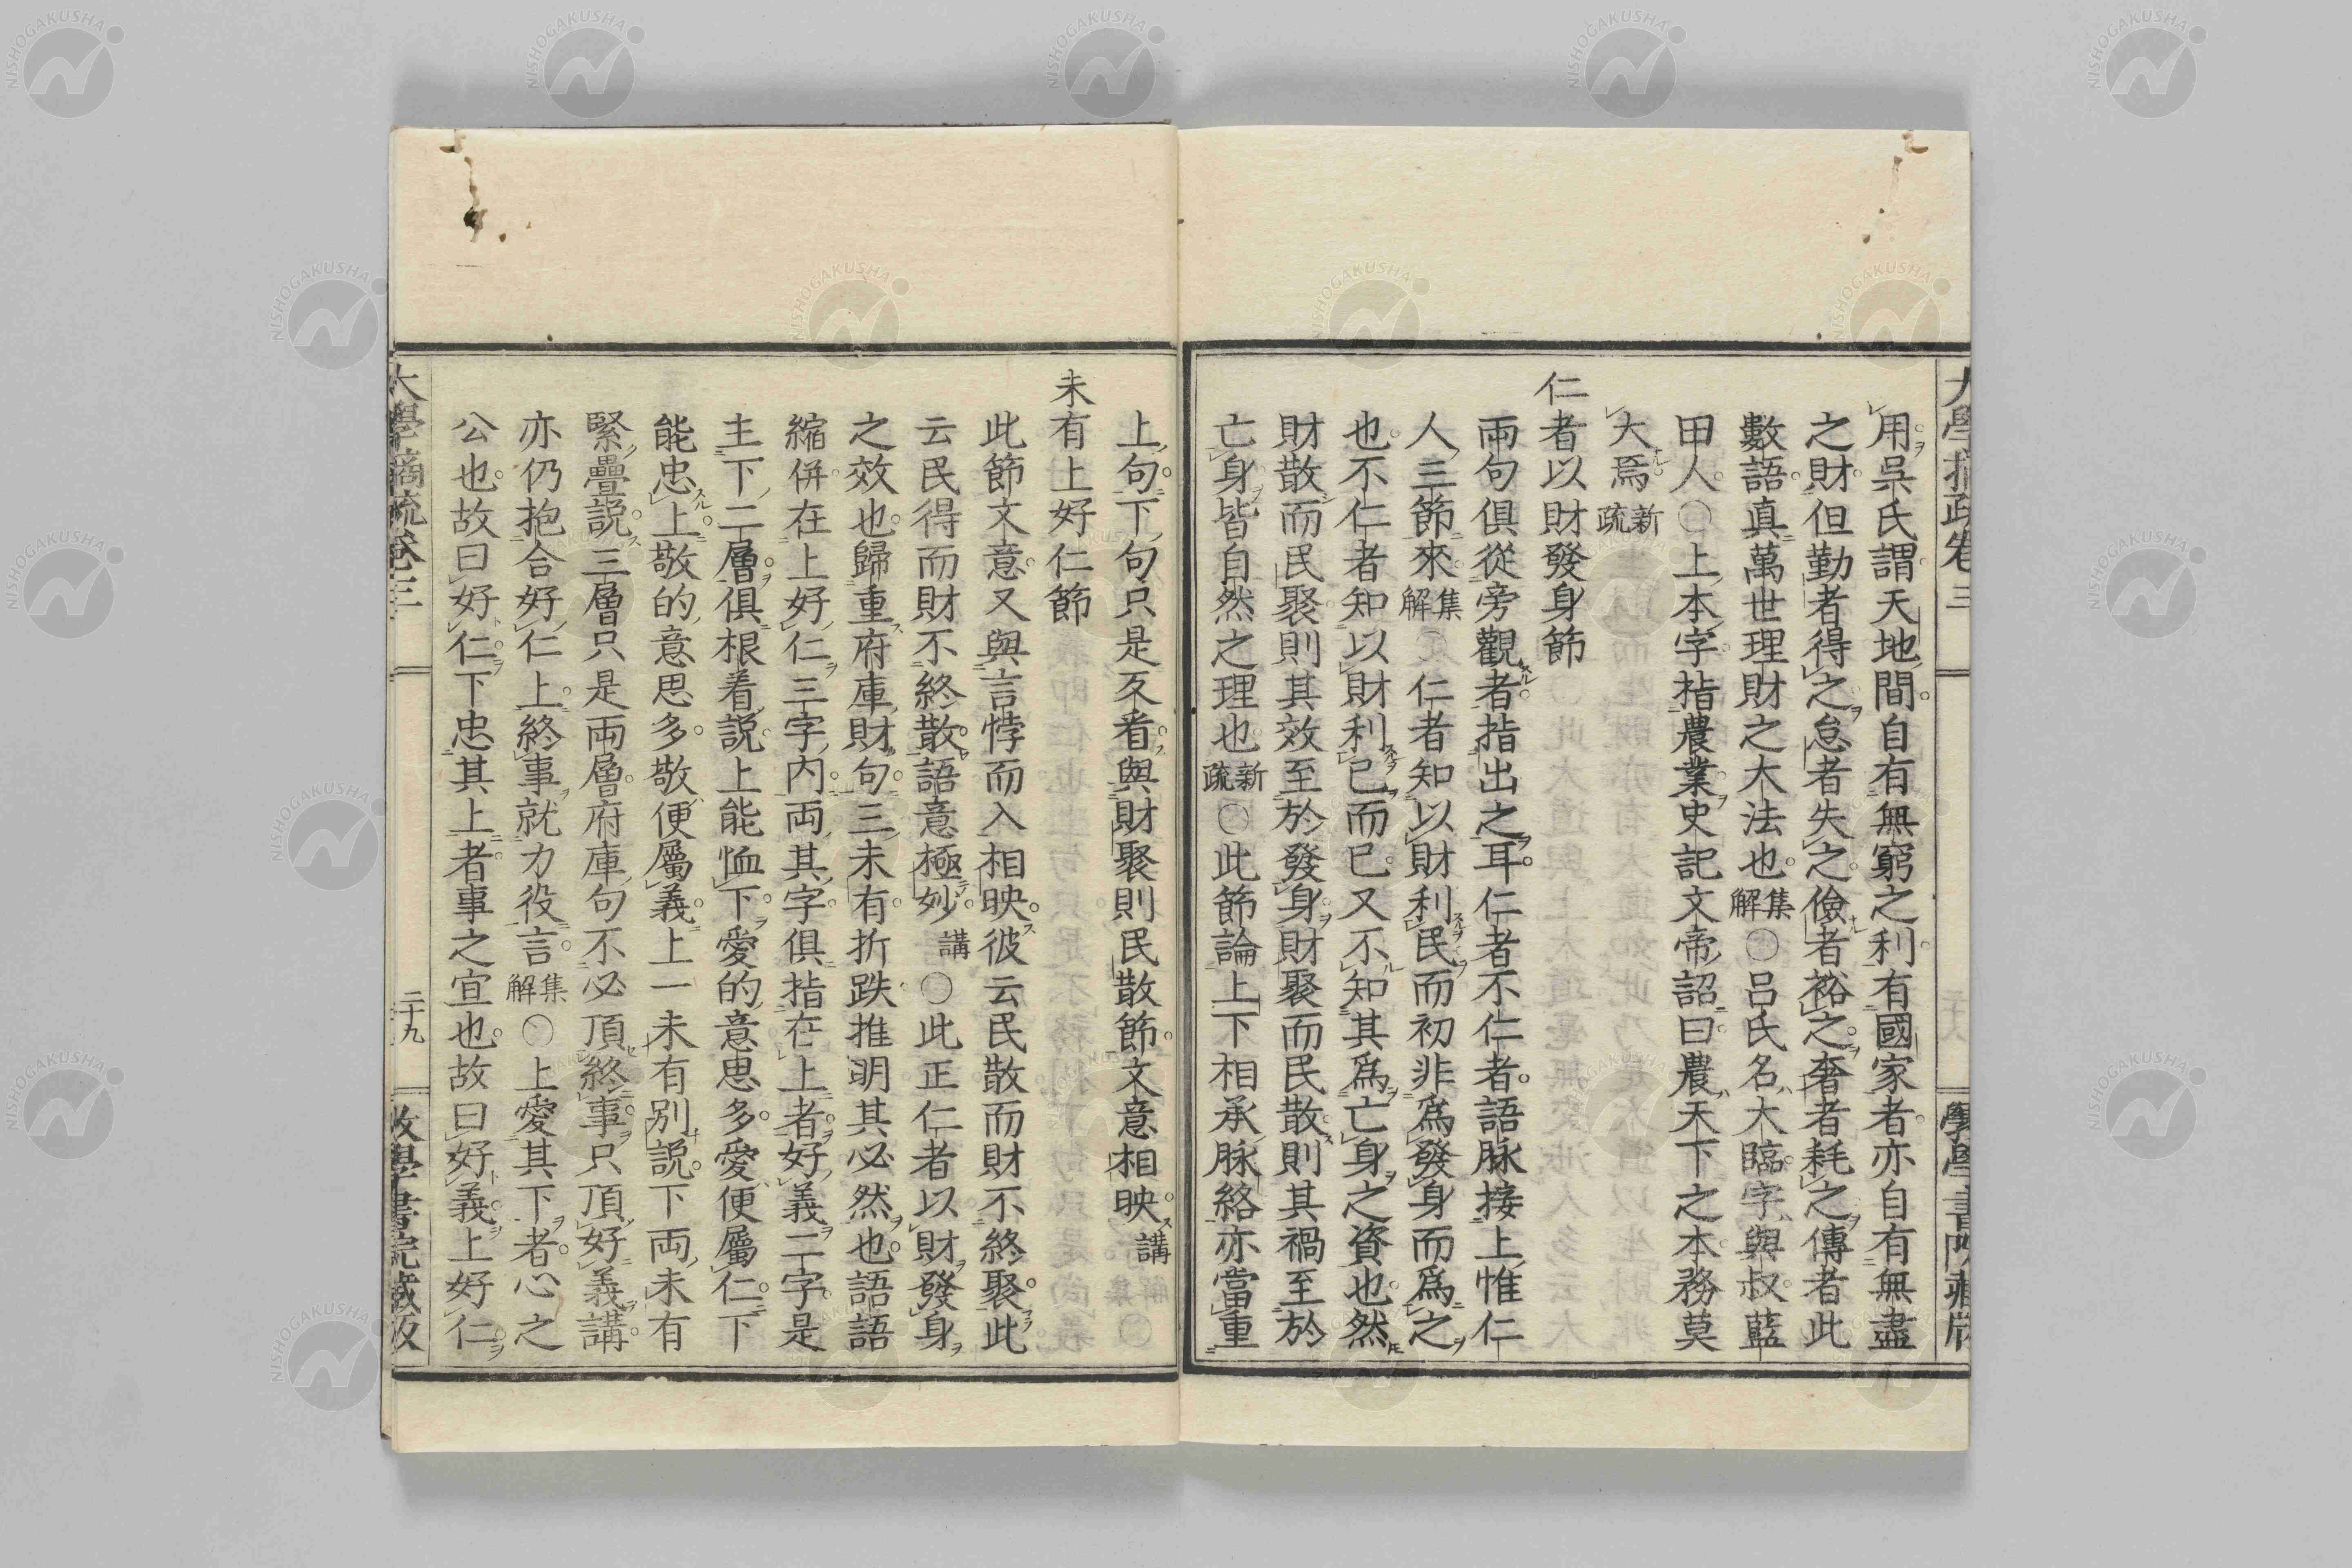 用吳氏謂天地間自有無窮之利有國家者亦自有無盡
之財但勤者得之怠者失之儉者裕之奢者耗之傳者此
數語真萬世理財之大法也集解〇呂氏名大臨字與叔藍
田人〇上本字指農業史記文帝詔曰農天下之本務莫
大焉新疏
仁者以財發身節
兩句俱從旁觀者指出之耳仁者不仁者語脉接上惟仁
人三節來集解〇仁者知以財利民而初非爲發身而爲之
也不仁者知以財利己而已又不知其爲亡身之資也然
財散而民聚則其效至於發身財聚而民散則其禍至於
亡身皆自然之理也新疏〇此節論上下相承脉絡亦當重
上句下句只是互看與財聚則民散節文意相映講
未有上好仁節
此節文意又與言悖而入相映彼云民散而財不終聚此
云民得而財不終散語意極妙講〇此正仁者以財發身
之效也歸重府庫財句三未有折跌推明其必然也語語
縮併在上好仁三字內両其字俱指在上者好義二字是
主下二層俱根着説上能恤下愛的意思多愛便屬仁下
能忠上敬的意思多敬便屬義上一未有別説下両未有
緊疊説三層只是両層府庫句不必頂終事只頂好義講
亦仍抱合好仁上終事就力役言集解〇上愛其下者心之
公也故曰好仁下忠其上者事之宜也故曰好義上好仁
大學摘疏卷三
二十九
NISHOGAKUSHA